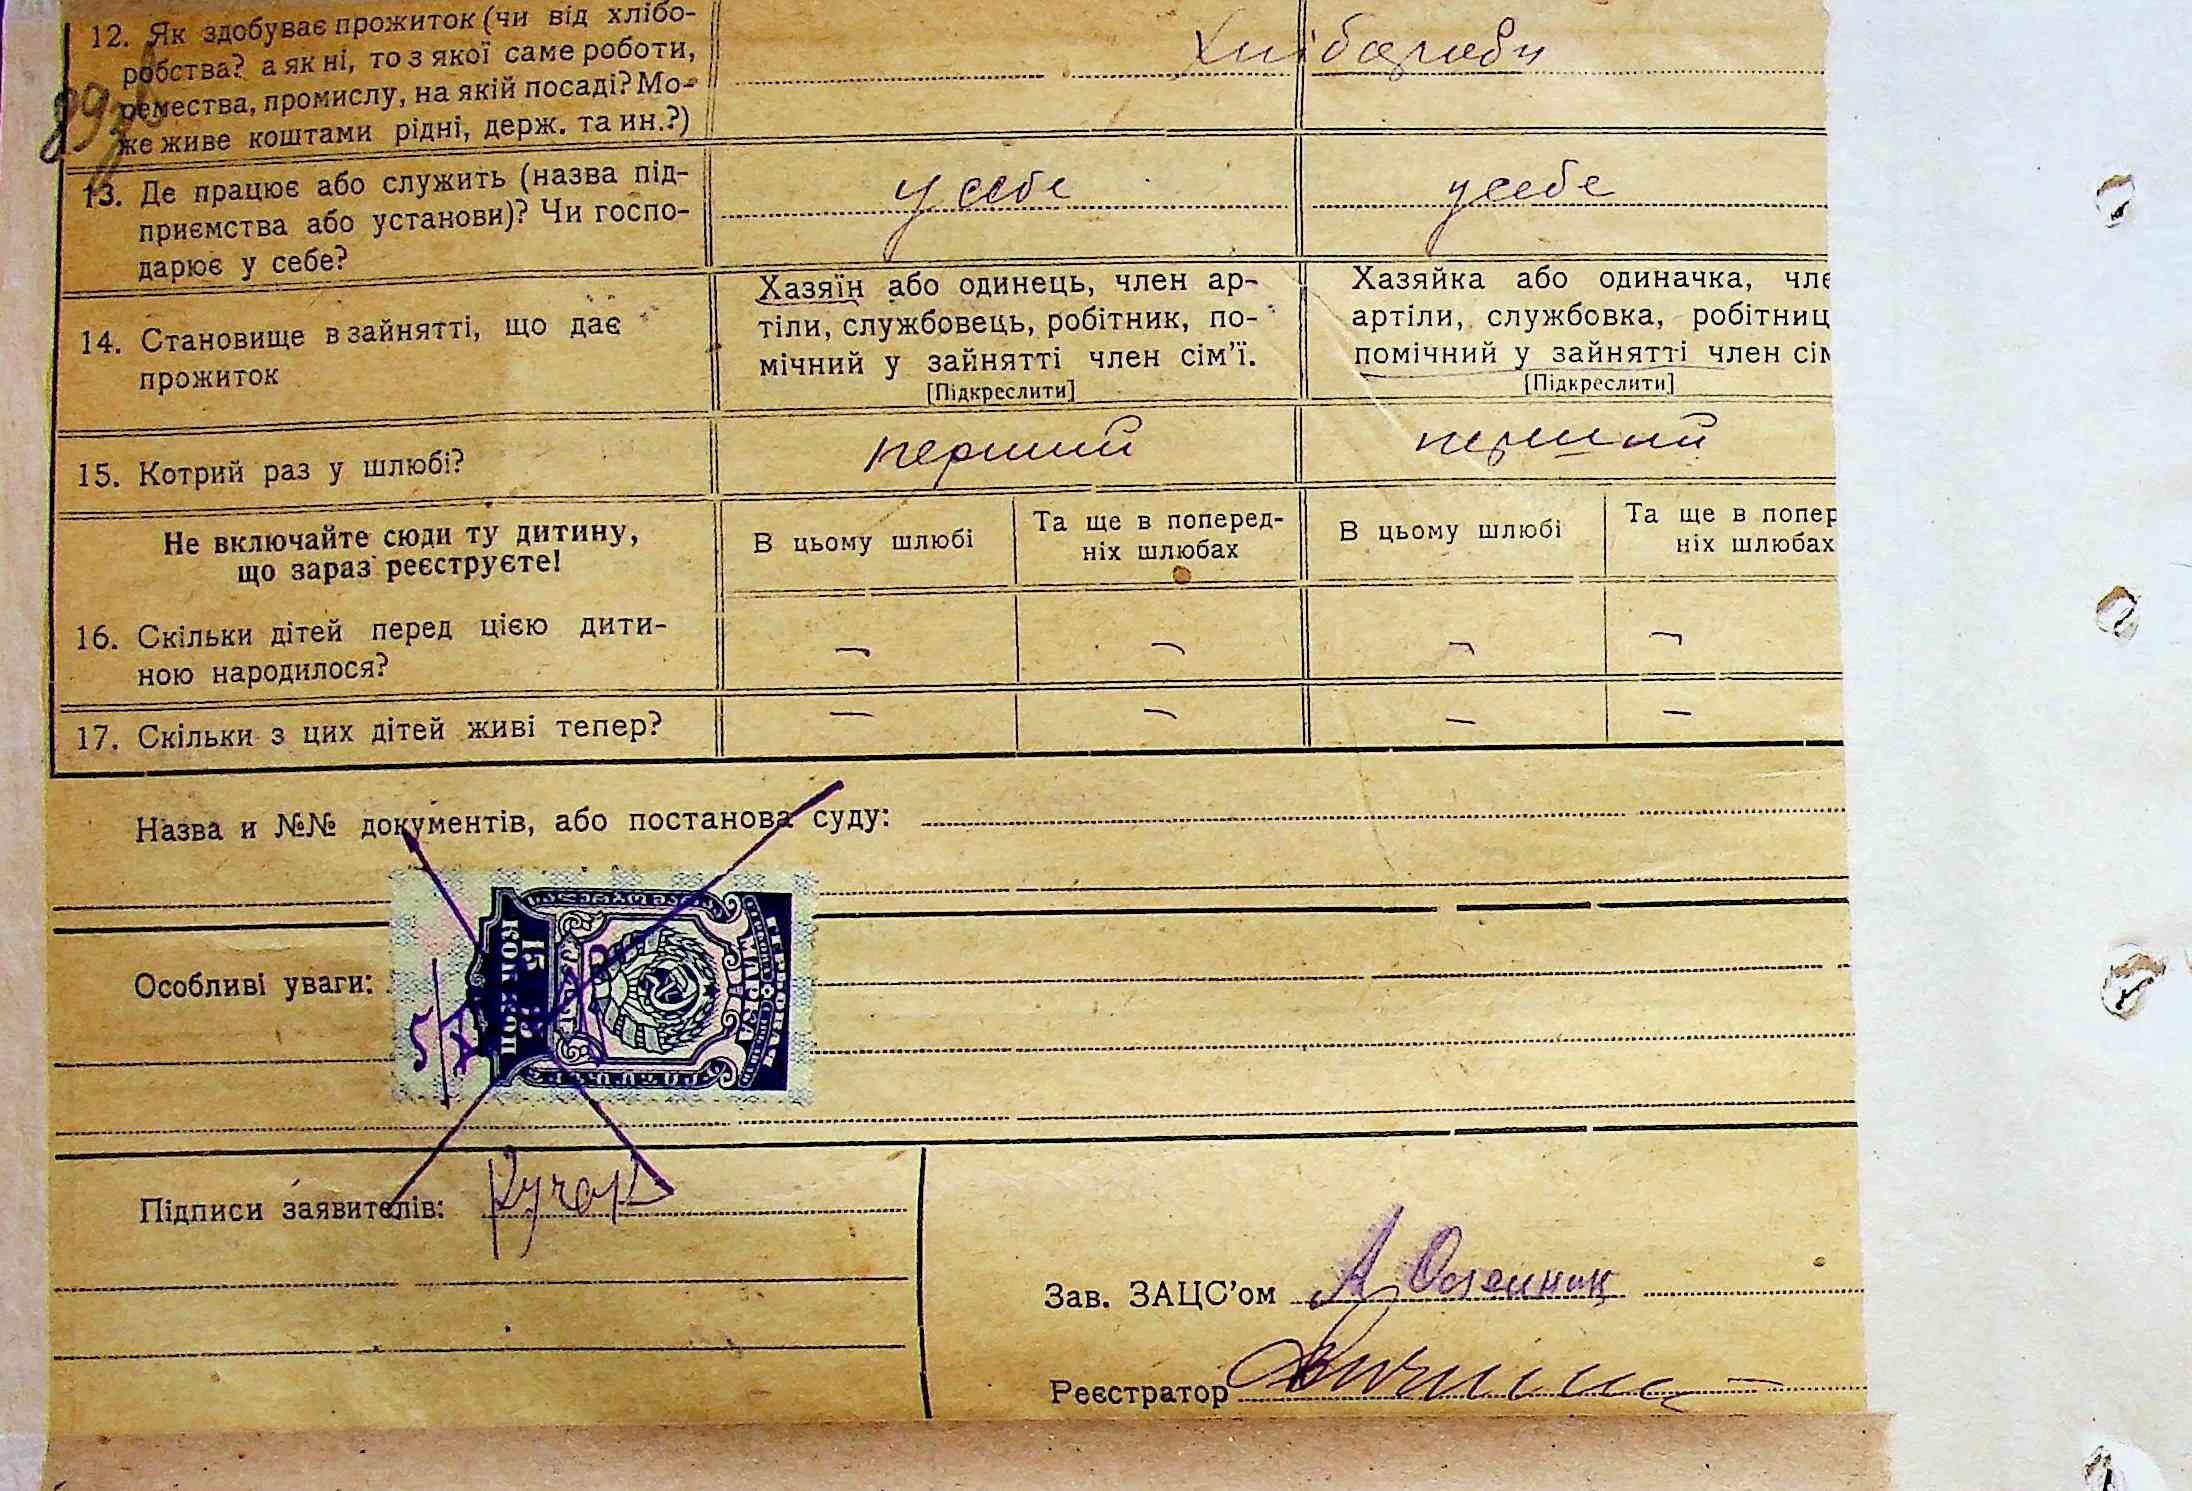 12. Як здобуває прожиток (чи від хлібо-
робства? а як ні, то з якої саме роботи,
ремества, промислу, на якій посаді? Мо-
же живе коштами рідні, держ. та ин.?)
Хлібороби
13. Де працює або служить (назва під-
приємства або установи)? Чи госпо-
дарює у себе?
у себе
у себе
14. Становище в зайнятті, що дає
прожиток
Хазяїн або одинець, член ар-
тіли, службовець, робітник, по-
мічний у зайнятті член сім'ї.
[Підкреслити]
Хазяйка або одиначка, чле
артіли, службовка, робітниц
помічний у зайнятті член сім
[Підкреслити]
15. Котрий раз у шлюбі?
перший
перший
Не включайте сюди ту дитину,
що зараз реєструєте!
В цьому шлюбі
Та ще в поперед-
ніх шлюбах
В цьому шлюбі
Та ще в попер
ніх шлюбах
16. Скільки дітей перед цією дити-
ною народилося?
— — — —
17. Скільки з цих дітей живі тепер?
— — — —
Назва и №№ документів, або постанова суду:
Особливі уваги:
15 КОП
ГЕРБОВАЯ
МАРКА
Підписи заявителів:
Зав. ЗАЦС'ом
Реєстратор